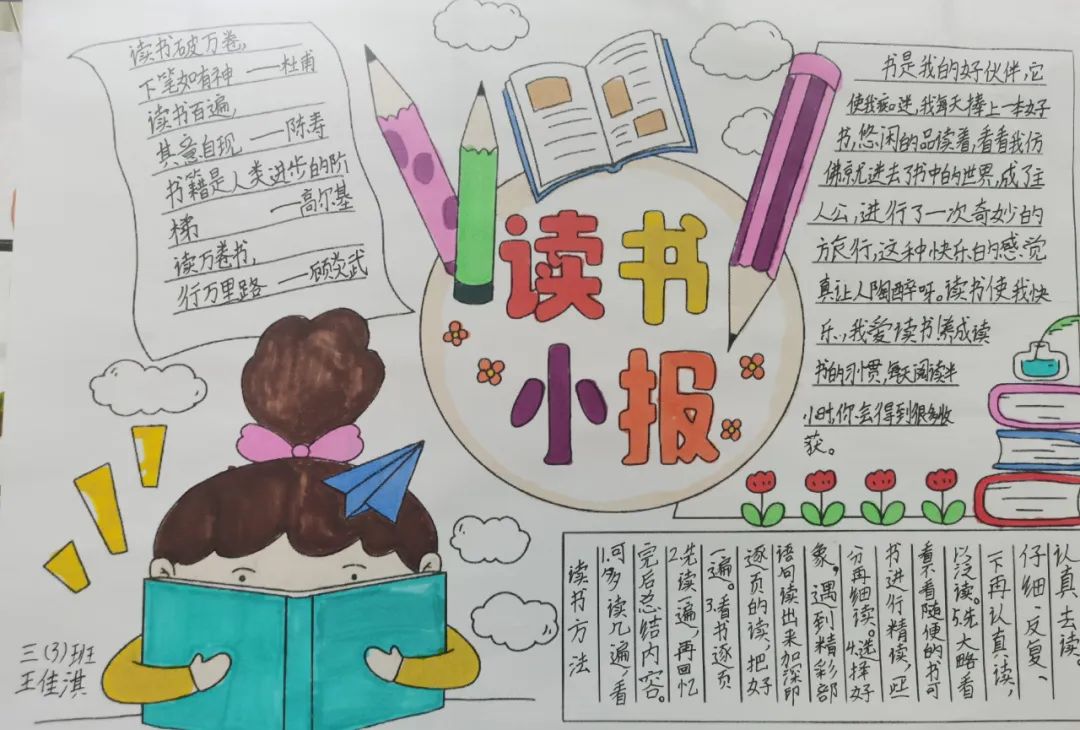 读书破万卷,
下笔如有神 ——杜甫
读书百遍,
其意自现 ——陈寿
书籍是人类进步的阶
梯 ——高尔基
读万卷书,
行万里路 ——顾炎武
读书
小报
书是我的好伙伴,它
使我痴迷,我每天捧上一本好
书,悠闲的品读着,看看我仿
佛就进去了书中的世界,成了主
人公,进行了一次奇妙的
旅行,这种快乐的感觉
真让人陶醉呀。读书使我快
乐,我爱读书养成读
书的习惯,每天阅读半
小时,你会得到很多收
获。
三(3)班
王佳淇
读书方法
1.可多读几遍,看
完后总结内容。
2.先读一遍,再回忆
一遍。3.看书逐页
逐页的读,把好
语句读出来加深印
象,遇到精彩部
分再细读。4.选择好
书进行精读,
看不看随便的书可
以泛读。5.先大略看
下再认真读,
仔细、反复、
认真去读。